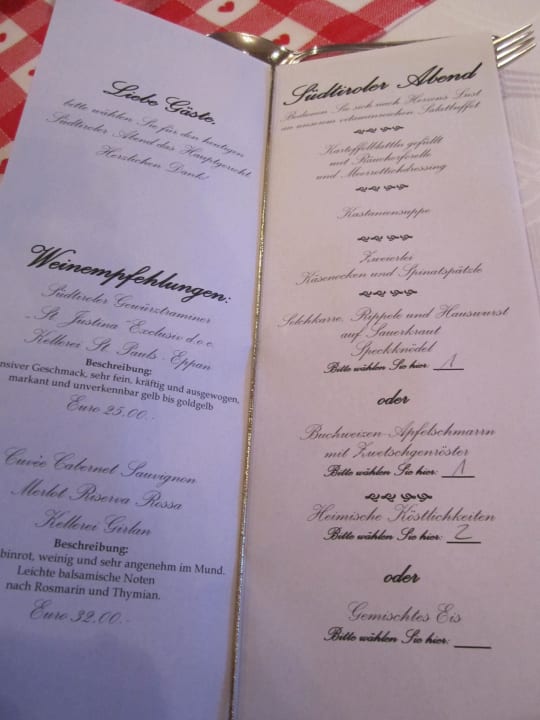 Liebe Gäste,
bitte wählen Sie für den heutigen
Südtiroler Abend das Hauptgericht.
Herzlichen Dank!
Weinempfehlungen:
Südtiroler Gewürztraminer
„St. Justina" Exclusiv d.o.c.
Kellerei St. Pauls - Eppan
Beschreibung:
nsiver Geschmack, sehr fein, kräftig und ausgewogen,
markant und unverkennbar gelb bis goldgelb
Euro 25,00.-
Cuvée Cabernet Sauvignon
Merlot Riserva Rossa
Kellerei Girlan
Beschreibung:
binrot, weinig und sehr angenehm im Mund.
Leichte balsamische Noten
nach Rosmarin und Thymian.
Euro 32,00.-
Südtiroler Abend
Bedienen Sie sich nach Herzens Lust
an unserem vitaminreichen Salatbuffet
Kartoffelblattln gefüllt
mit Räucherforelle
und Meerrettichdressing
Kastaniensuppe
Zweierlei
Käsenocken und Spinatspätzle
Selchkarre, Rippele und Hauswurst
auf Sauerkraut
Speckknödel
Bitte wählen Sie hier: 1
oder
Buchweizen-Apfelschmarrn
mit Zwetschgenröster
Bitte wählen Sie hier: 1
Heimische Köstlichkeiten
Bitte wählen Sie hier: 2
oder
Gemischtes Eis
Bitte wählen Sie hier: